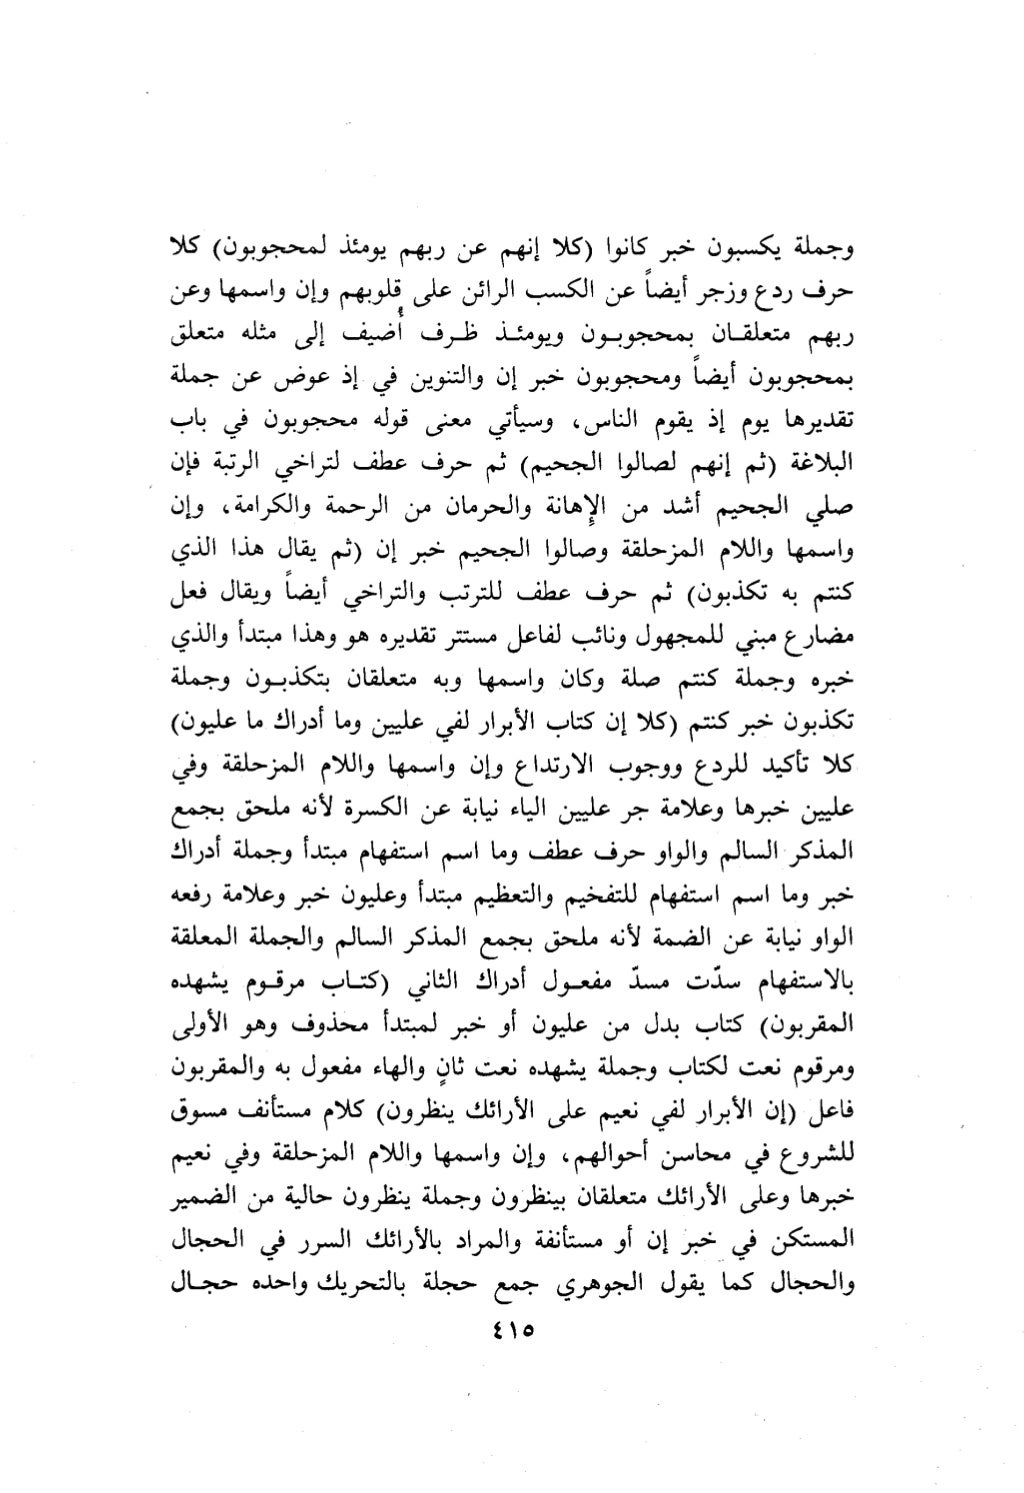 وجملة يكسبون خبر كانوا (كلا إنهم عن ربهم يومئذ لمحجوبون) كلا
حرف ردع وزجر أيضاً عن الكسب الرائن على قلوبهم وإن واسمها وعن
ربهم متعلقـان بمحجوبـون ويومئـذ ظـرف أُضيف إلى مثله متعلق
بمحجوبون أيضاً ومحجوبون خبر إن والتنوين في إذ عوض عن جملة
تقديرها يوم إذ يقوم الناس، وسيأتي معنى قوله محجوبون في باب
البلاغة (ثم إنهم لصالوا الجحيم) ثم حرف عطف لتراخي الرتبة فإن
صلي الجحيم أشد من الإهانة والحرمان من الرحمة والكرامة، وإن
واسمها واللام المزحلقة وصالوا الجحيم خبر إن (ثم يقال هذا الذي
كنتم به تكذبون) ثم حرف عطف للترتب والتراخي أيضاً ويقال فعل
مضارع مبني للمجهول ونائب لفاعل مستتر تقديره هو وهذا مبتدأ والذي
خبره وجملة كنتم صلة وكان واسمها وبه متعلقان بتكذبـون وجملة
تكذبون خبر كنتم (كلا إن كتاب الأبرار لفي عليين وما أدراك ما عليون)
كلا تأكيد للردع ووجوب الارتداع وإن واسمها واللام المزحلقة وفي
عليين خبرها وعلامة جر عليين الياء نيابة عن الكسرة لأنه ملحق بجمع
المذكر السالم والواو حرف عطف وما اسم استفهام مبتدأ وجملة أدراك
خبر وما اسم استفهام للتفخيم والتعظيم مبتدأ وعليون خبر وعلامة رفعه
الواو نيابة عن الضمة لأنه ملحق بجمع المذكر السالم والجملة المعلقة
بالاستفهام سدّت مسدّ مفعـول أدراك الثاني (كتـاب مرقـوم يشهده
المقربون) كتاب بدل من عليون أو خبر لمبتدأ محذوف وهو الأولى
ومرقوم نعت لكتاب وجملة يشهده نعت ثانٍ والهاء مفعول به والمقربون
فاعل (إن الأبرار لفي نعيم على الأرائك ينظرون) كلام مستأنف مسوق
للشروع في محاسن أحوالهم، وإن واسمها واللام المزحلقة وفي نعيم
خبرها وعلى الأرائك متعلقان بينظرون وجملة ينظرون حالية من الضمير
المستكن في خبر إن أو مستأنفة والمراد بالأرائك السرر في الحجال
والحجال كما يقول الجوهري جمع حجلة بالتحريك واحده حجـال
٤١٥